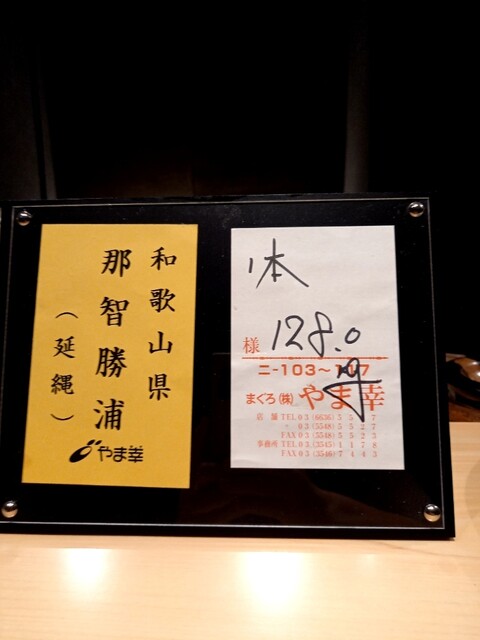 和歌山県
那智勝浦
（延縄）
やま幸
1本
128.0
様
ニ-103～117
まぐろ(株)やま幸
店舗 TEL 03(6636)5527
〃 03(5548)5527
FAX 03(5548)5523
事務所 TEL 03(3545)1178
FAX 03(3546)7443